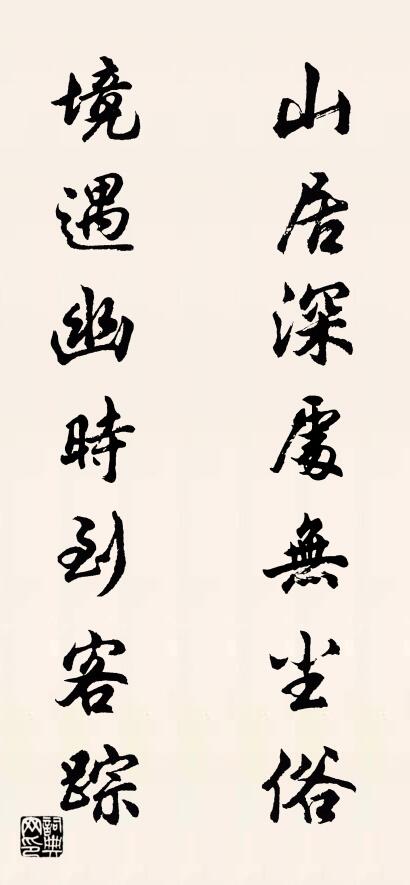 山居深處無尘俗
境遇幽時到客踪
詞典
网印